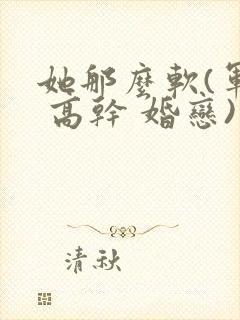 她那麼軟(軍
高幹 婚戀)
清秋